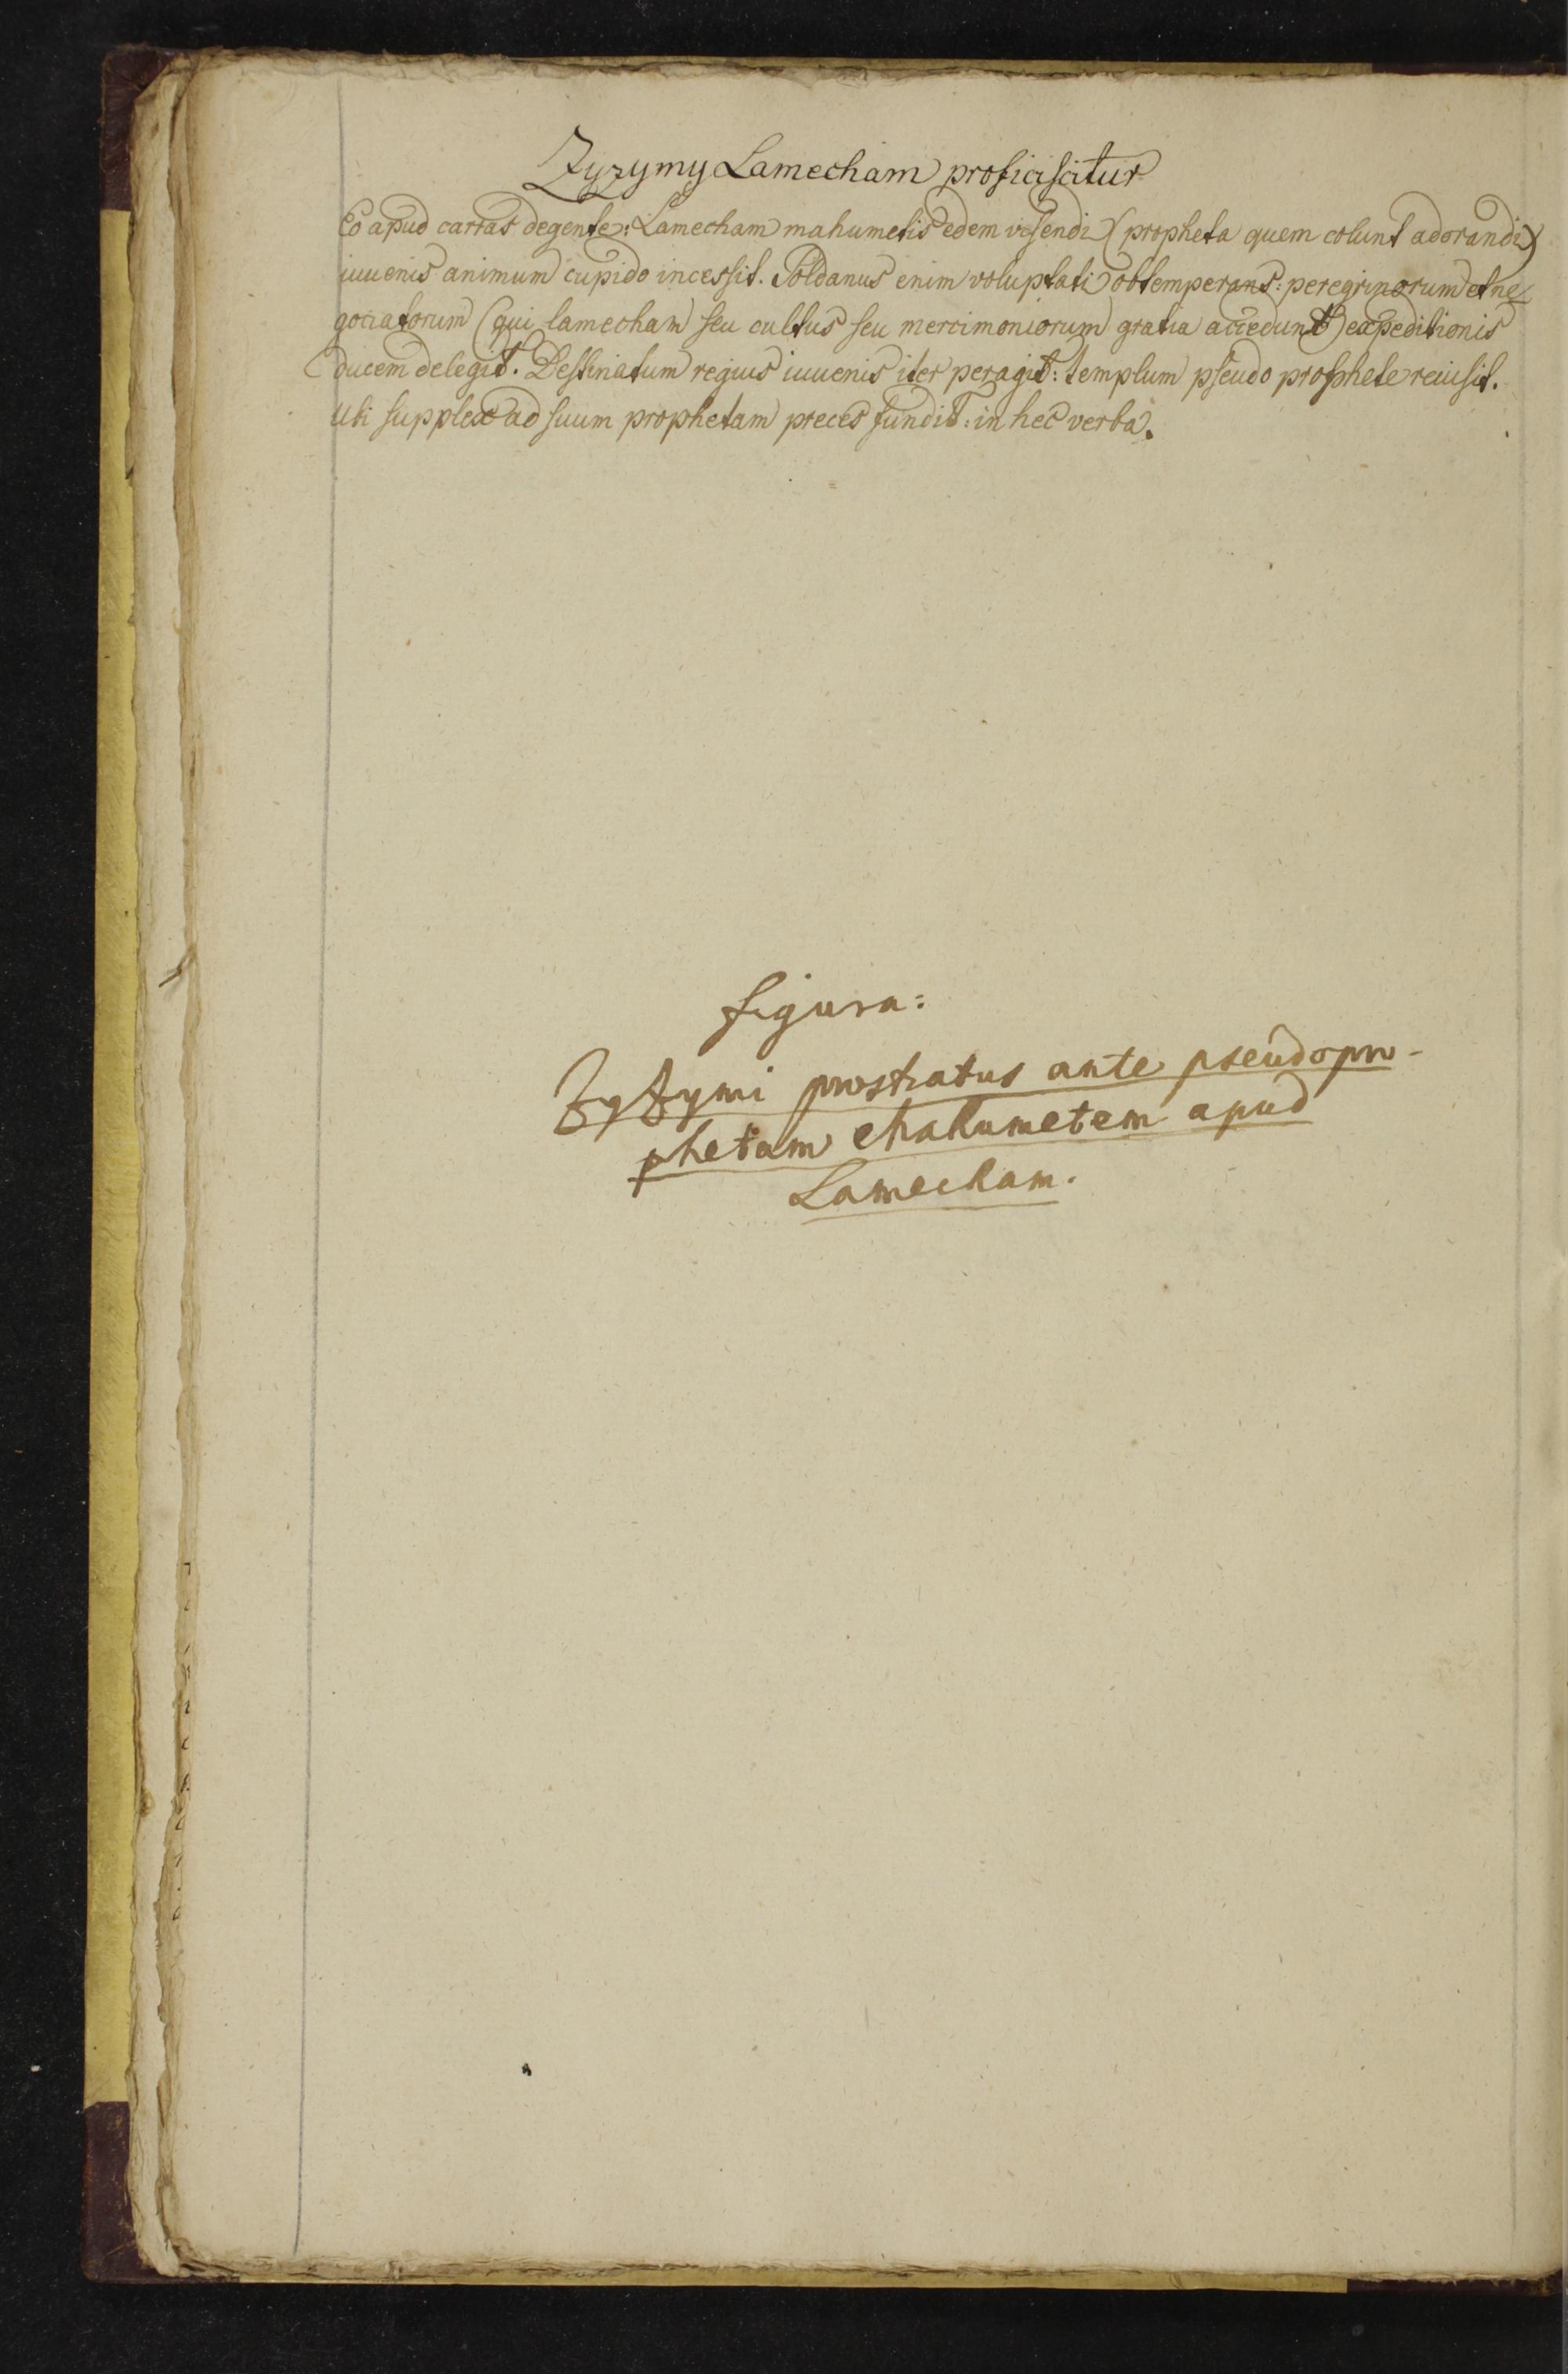 Zyzymy Lamecham proficiscitur
Eo apud carras degente: Lamecham mahumetis edem visendi (propheta quem colunt adorandi)
iuuenis animum cupido incessit. Soldanus enim voluptati obtemperans: peregrinorum et ne
gociatorum (qui lamecham seu cultus seu mercimoniorum gratia accedunt) expeditionis
ducem delegit. Destinatum regius iuuenis iter peragit: templum pseudo prophete reuisit.
Ubi supplex ad suum prophetam preces fundit: in hec verba.
figura:
Zyzymi prostratus ante pseudopro-
phetam Mahumetem apud
Lamecham.